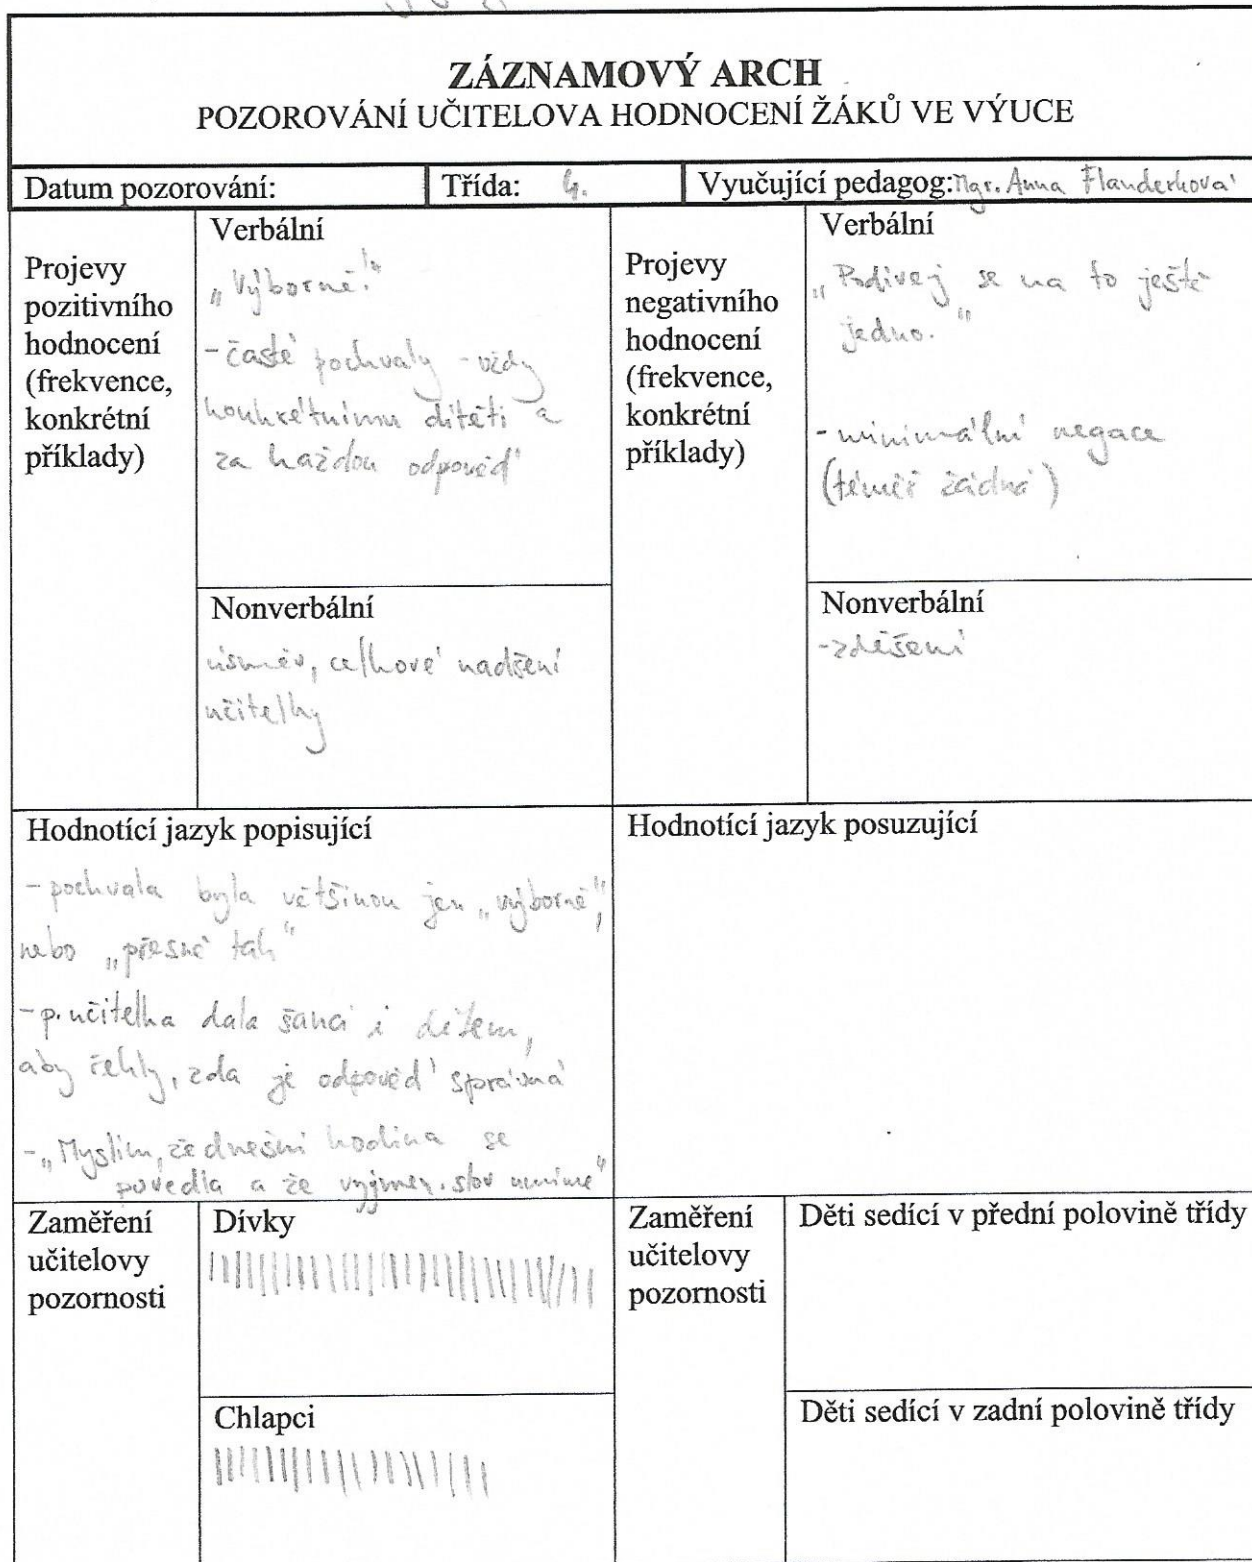 ZÁZNAMOVÝ ARCH
POZOROVÁNÍ UČITELOVA HODNOCENÍ ŽÁKŮ VE VÝUCE
Datum pozorování:
Třída: 4.
Vyučující pedagog: Mgr. Anna Flanderková
Projevy
pozitivního
hodnocení
(frekvence,
konkrétní
příklady)
Verbální
„Výborně!“
- časté pochvaly - vždy
konkrétnímu dítěti a
za každou odpověď
Nonverbální
úsměv, celkové nadšení
učitelky
Projevy
negativního
hodnocení
(frekvence,
konkrétní
příklady)
Verbální
„Podívej se na to ještě
jedno.“
- minimální negace
(téměř žádná)
Nonverbální
- zděšení
Hodnotící jazyk popisující
- pochvala byla většinou jen „výborně“,
nebo „přesně tak“
- p. učitelka dala šanci i dětem,
aby řekly, zda je odpověď správná
- „Myslím, že dnešní hodina se
povedla a že vyjmen. slov umíme“
Hodnotící jazyk posuzující
Zaměření
učitelovy
pozornosti
Dívky
Chlapci
Zaměření
učitelovy
pozornosti
Děti sedící v přední polovině třídy
Děti sedící v zadní polovině třídy